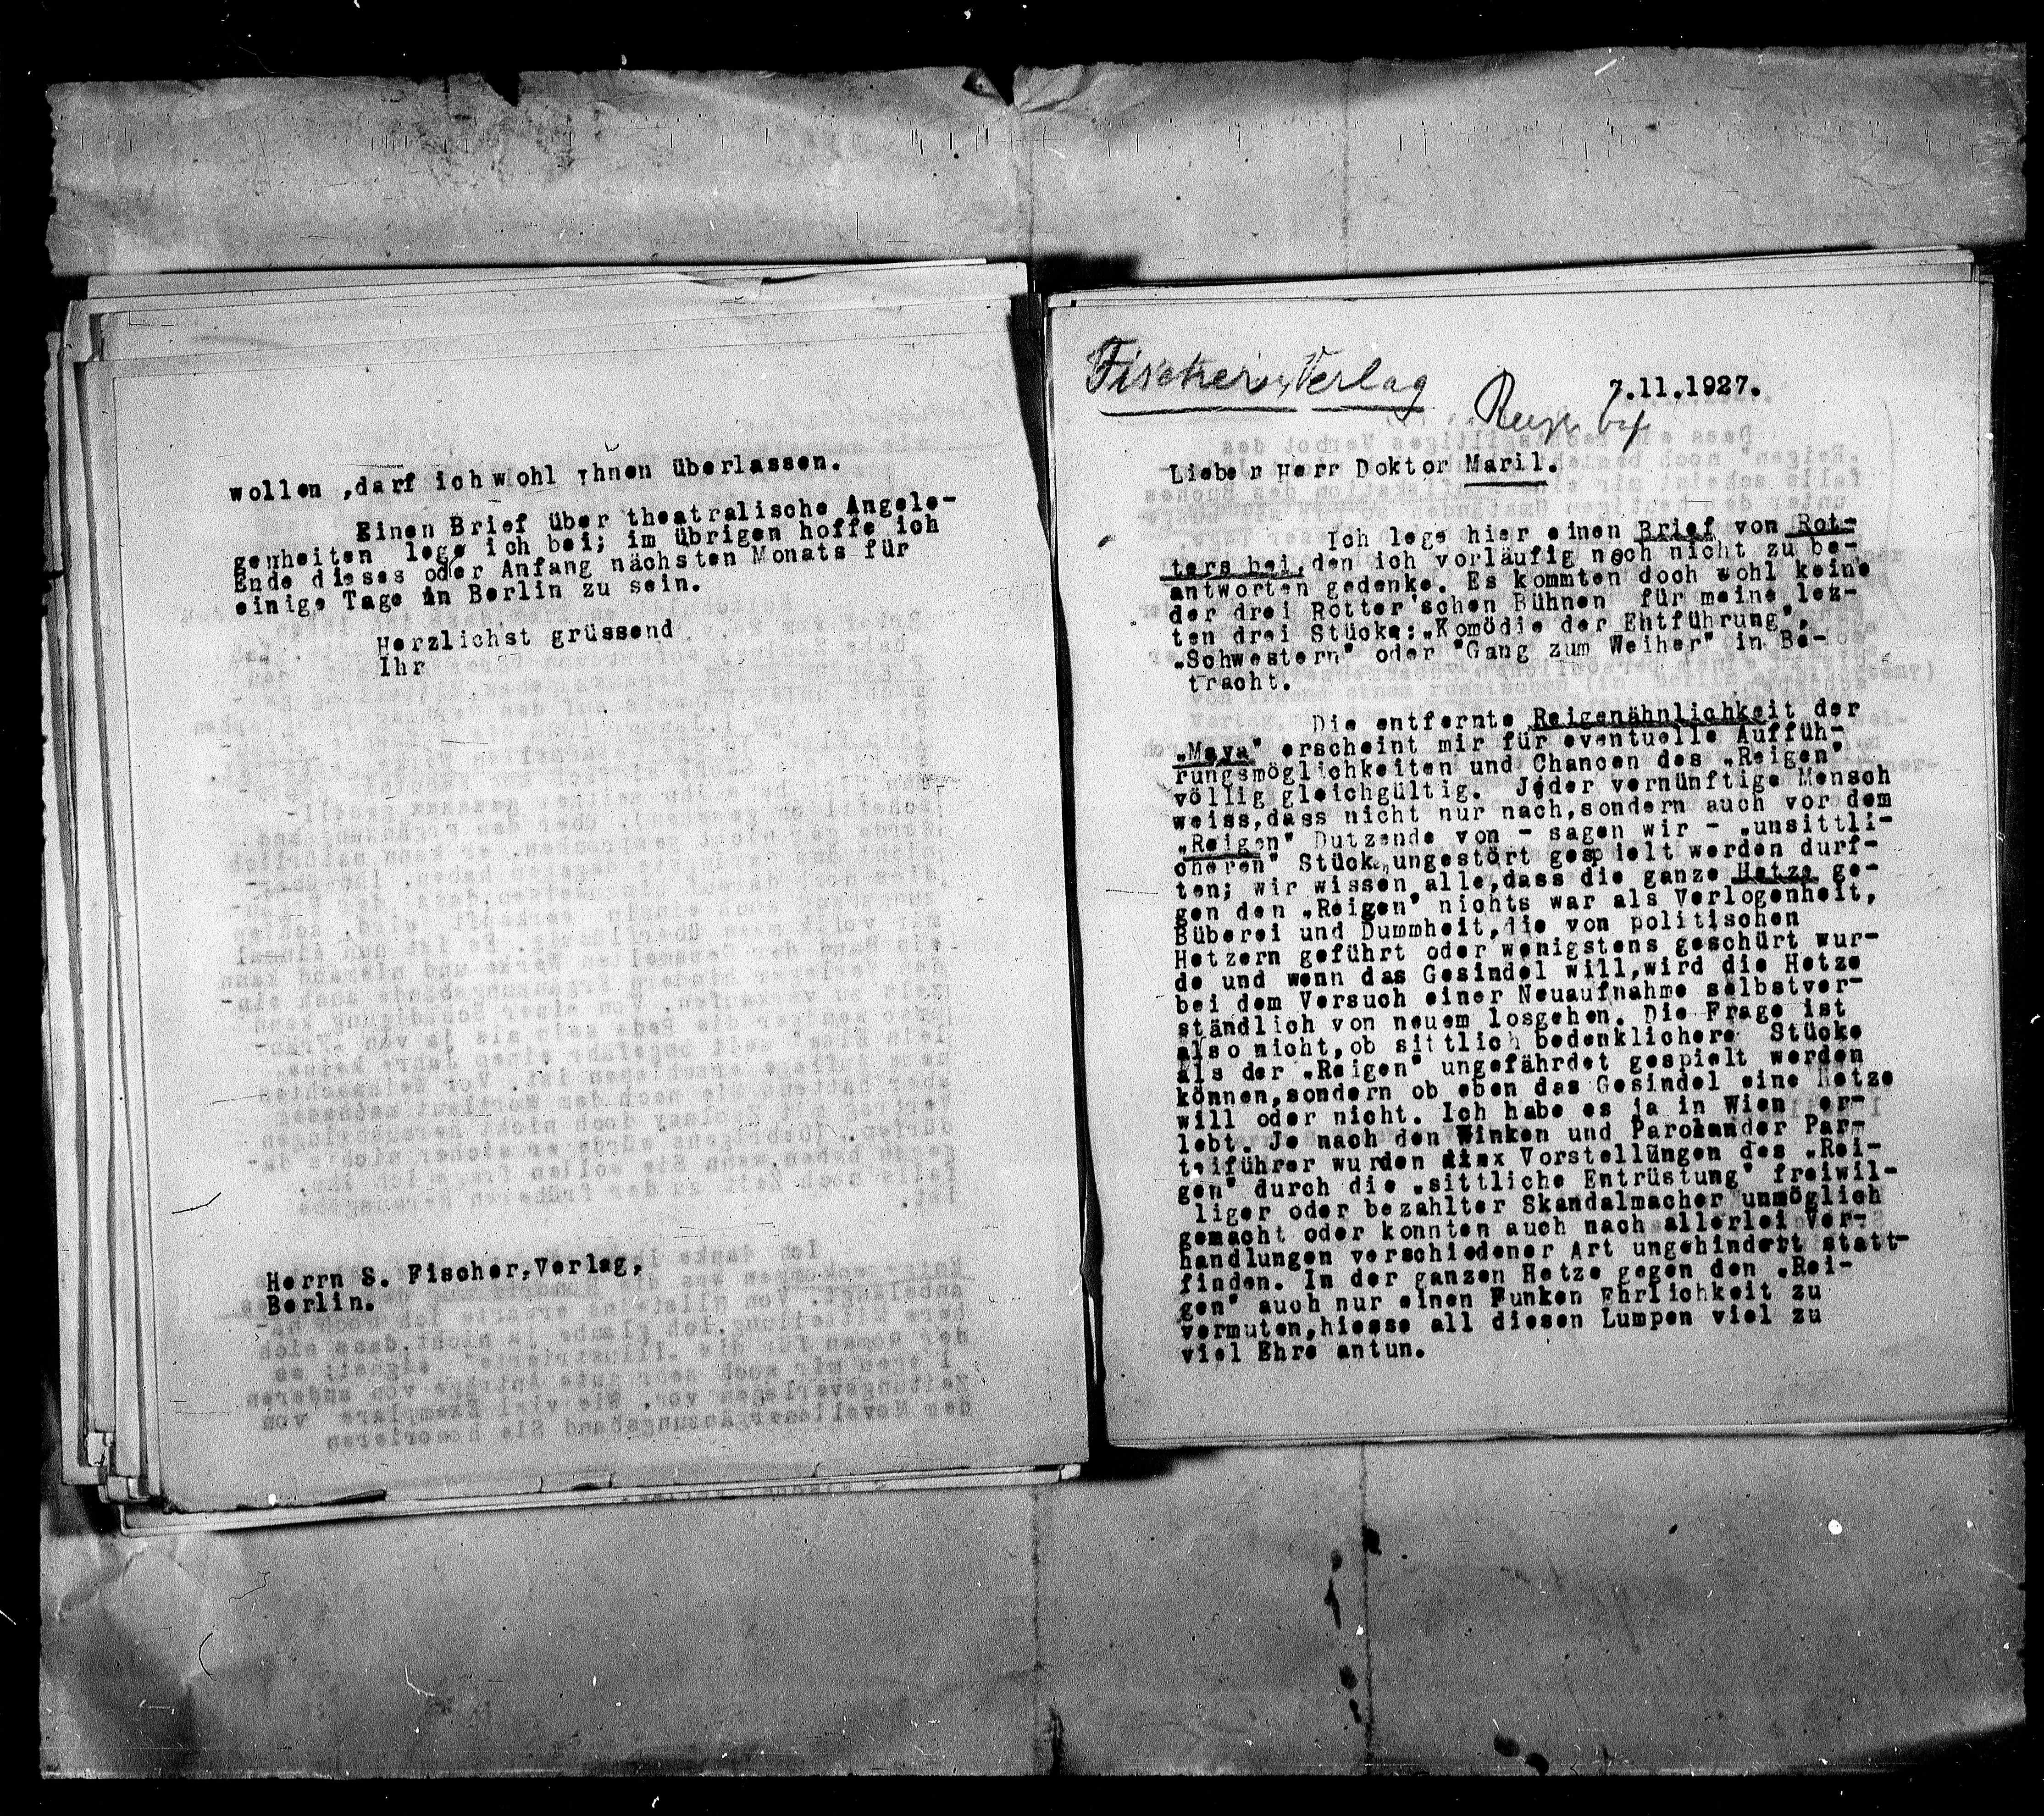 wollen ,darf ich wohl Ihnen überlassen.
Einen Brief über theatralische Angele-
genheiten lege ich bei; im übrigen hoffe ich
Ende dieses oder Anfang nächsten Monats für
einige Tage in Berlin zu sein.
Herzlichst grüssend
Ihr
Herrn S. Fischer,Verlag,
Berlin.
Fischer, Verlag
7.11.1927.
Lieber Herr Doktor Maril.
Ich lege hier einen Brief von Rot-
ters bei,den ich vorläufig noch nicht zu be-
antworten gedenke. Es kommten doch wohl keine
der drei Rotter'schen Bühnen für meine lez-
ten drei Stücke:„Komödie der Entführung",
„Schwestern" oder "Gang zum Weiher" in Be-
tracht.
Die entfernte Reigenähnlichkeit der
„Maya" erscheint mir für eventuelle Auffüh-
rungsmöglichkeiten und Chancen des „Reigen"
völlig gleichgültig. Jeder vernünftige Mensch
weiss,dass nicht nur nach,sondern auch vor dem
„Reigen" Dutzende von - sagen wir - „unsittli-
cheren" Stücke ungestört gespielt werden durf-
ten; wir wissen alle,dass die ganze Hetze ge-
gen den „Reigen" nichts war als Verlogenheit,
Büberei und Dummheit,die von politischen
Hetzern geführt oder wenigstens geschürt wur-
de und wenn das Gesindel will,wird die Hetze
bei dem Versuch einer Neuaufnahme selbstver-
ständlich von neuem losgehen. Die Frage ist
also nicht,ob sittlich bedenklichere Stücke
als der „Reigen" ungefährdet gespielt werden
können,sondern ob eben das Gesindel eine Hetze
will oder nicht. Ich habe es ja in Wien er-
lebt. Je nach den Winken und Parolen der Par-
teiführer wurden Vorstellungen des „Rei-
gen" durch die „sittliche Entrüstung" freiwil-
liger oder bezahlter Skandalmacher unmöglich
gemacht oder konnten auch nach allerlei Ver-
handlungen verschiedener Art ungehindert statt-
finden. In der ganzen Hetze gegen den „Rei-
gen" auch nur einen Funken Ehrlichkeit zu
vermuten,hiesse all diesen Lumpen viel zu
viel Ehre antun.